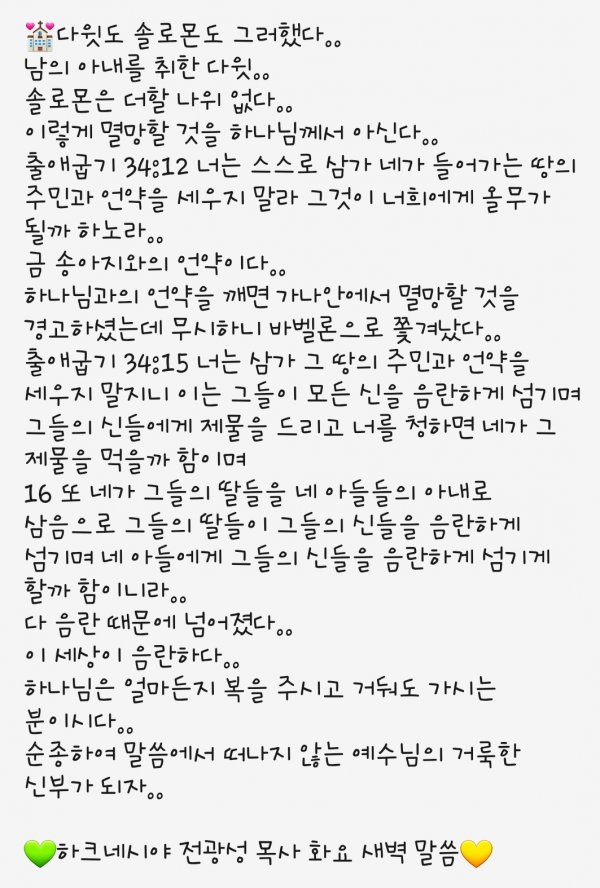 💒다윗도 솔로몬도 그러했다。。
남의 아내를 취한 다윗。。
솔로몬은 더할 나위 없다。。
이렇게 멸망할 것을 하나님께서 아신다。。
출애굽기 34:12 너는 스스로 삼가 네가 들어가는 땅의
주민과 언약을 세우지 말라 그것이 너희에게 올무가
될까 하노라。。
금 송아지와의 언약이다。。
하나님과의 언약을 깨면 가나안에서 멸망할 것을
경고하셨는데 무시하니 바벨론으로 쫓겨났다。。
출애굽기 34:15 너는 삼가 그 땅의 주민과 언약을
세우지 말지니 이는 그들이 모든 신을 음란하게 섬기며
그들의 신들에게 제물을 드리고 너를 청하면 네가 그
제물을 먹을까 함이며
16 또 네가 그들의 딸들을 네 아들들의 아내로
삼음으로 그들의 딸들이 그들의 신들을 음란하게
섬기며 네 아들에게 그들의 신들을 음란하게 섬기게
할까 함이니라。。
다 음란 때문에 넘어졌다。。
이 세상이 음란하다。。
하나님은 얼마든지 복을 주시고 거둬도 가시는
분이시다。。
순종하여 말씀에서 떠나지 않는 예수님의 거룩한
신부가 되자。。
💚하크네시야 전광성 목사 화요 새벽 말씀💛